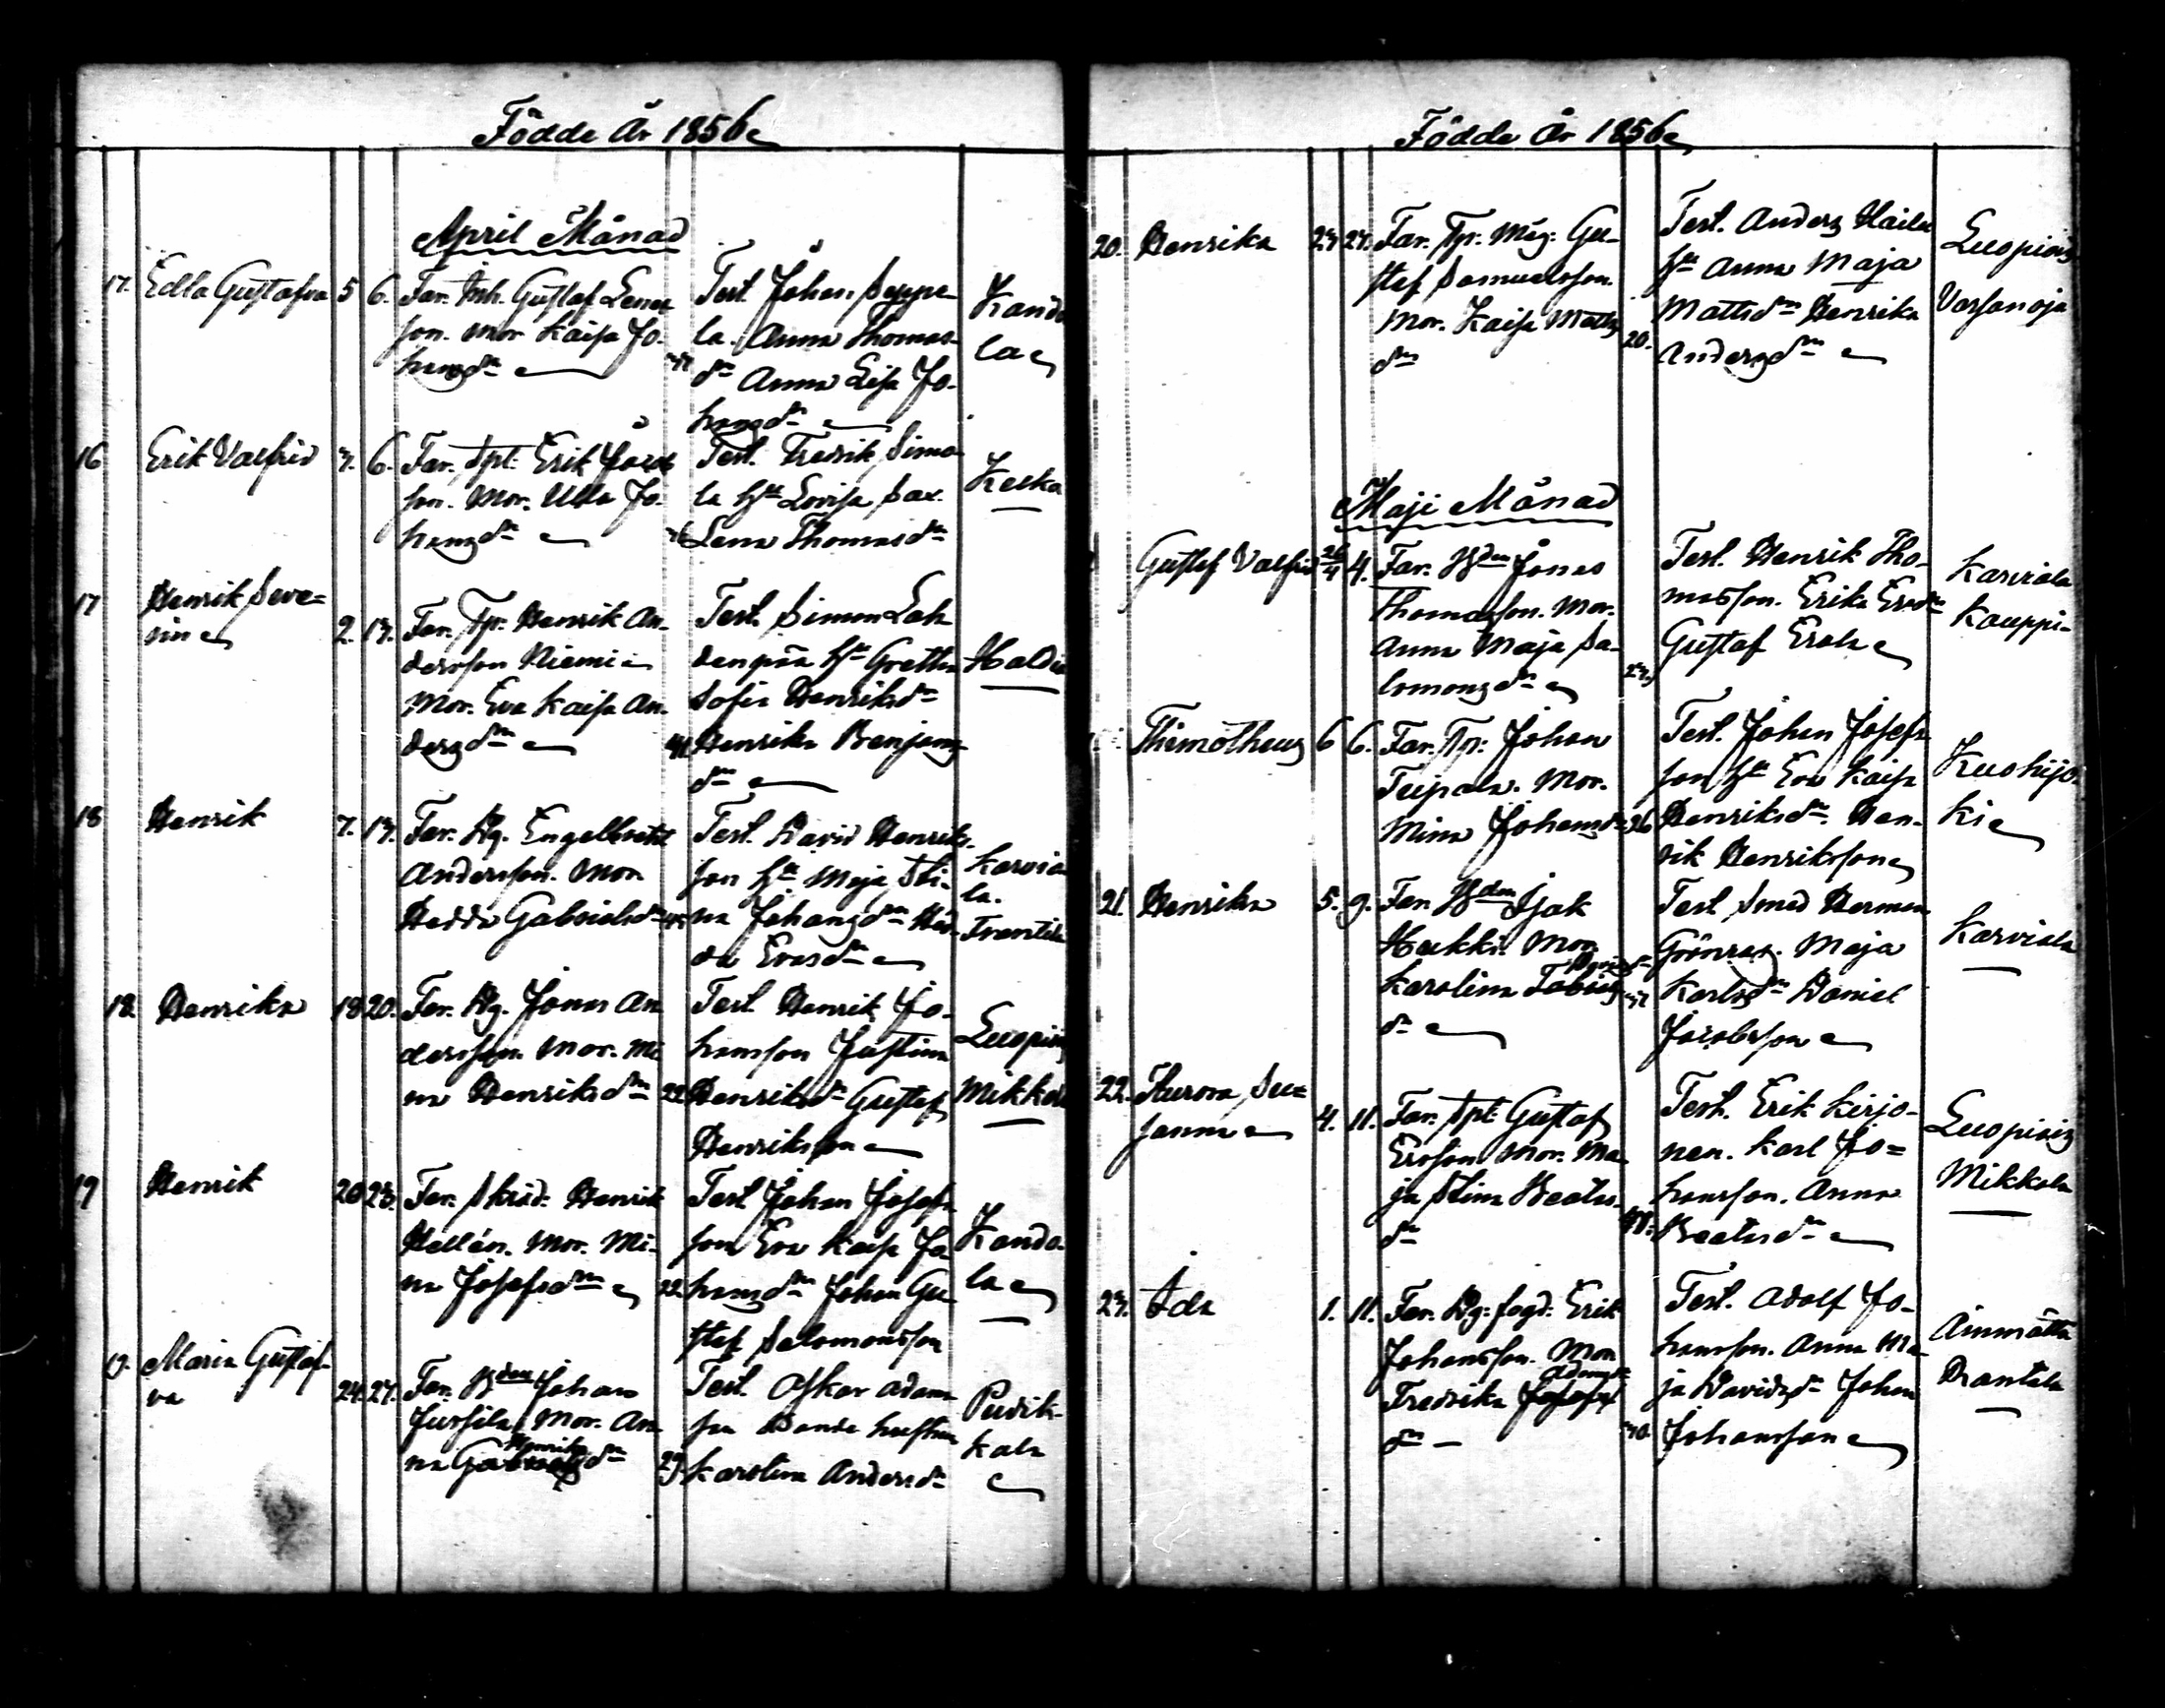 Födde År 1856
April Månad
17. Edla Gustafva 5 6. Far. Inh. Gustaf
son. Mor Kaisa Jo-
hansdr
Test. Johan Seppä-
la. Anna Thomas-
dr Anna Lisa Jo-
hansdr
Kando
la
16 Erik Valfrid 3. 6. Far. Spt. Erik
son. Mor. Ulla Jo-
hansdr
Test. Fredrik Simo
la hu Lovisa
Lena Thomasdr
Keska
17 Henrik Seve=
rin 2. 13. Far. Tp. Henrik An-
dersson Niemi
Mor. Eva Kaisa An-
dersdr
Test. Simon Lah
denpää hu Gretha
Sofia Henriksdr
41 Henrika Benjams
dr
Haldia
18 Henrik 7. 13. Far. Dg. Engelbrekt
Andersson. Mor
Hedda Gabrielsdr
Test. David Henriks-
son hu Maja Sti-
na Johansdr Hed-
da Ersdr
Karvia
la.
Franttila
18 Henrika 18 20. Far. Dg. Jonas An
dersson. Mor. Mi
na Henriksdr 22
Test. Henrik Jo-
hansson Justina
Henriksdr Gustaf
Henriksson
Luopiois
Mikkola
19 Henrik 20 23. Far. Skräd. Henrik
Hellén. Mor. Mi-
na Josefsdr 22
Test. Johan Josefs
son Eva Kaisa Jo
hansdr Johan Gu
staf Salomonsson
Kando-
la
19. Maria Gustaf-
va 24 27. Far. Bden Johan
Jussila. Mor. An
na Gabrielsdr
Henriks
29
Test. Oskar Adams
son Bonde hustrun
Karolina Andersdr
Puutik-
kala
Födde År 1856
20. Henrika 23 27. Far. Tp. Måg. Gu-
staf Samuelsson.
Mor. Kaisa Matts
dr
20.
Test. Anders Haila
hu Anna Maja
Mattsdr Henrika
Andersdr
Luopiois
Varsanoja
Maji Månad
Gustaf Valfrid 26/4 4. Far. Bden Jonas
Thomasson. Mor.
Anna Maja Sa-
lomonsdr
Test. Henrik Tho-
masson. Erika Ersdr
Gustaf Erola
Karviala
Kauppi-
Thimotheus 6 6. Far. Tp. Johan
Teipala. Mor.
Mina Johansdr 26
Test. Johan Josefs
son hu Eva Kaisa
Henriksdr. Hen-
rik Henriksson
Kuohijo
ki
21. Henrika 5. 9. Far. Bden Isak
Heikki. Mor
Karolina Tobias
dr
Test. Smed Herman
Grönros. Maja
Karlsdr Daniel
Jacobsson
Karviala
22. Aurora Su=
sanna 4. 11. Far. Spt. Gustaf
Ersson Mor. Ma
ja Stina Beatus-
dr
Test. Erik Kirjo-
nen. Karl Jo=
hansson. Anna
Beatusdr
Luopiois
Mikkola
23. Ida 1. 11. Far. Dg. fogd. Erik
Johansson. Mor
Adamsdr
Fredrika Josefs
dr
Test. Adolf Jo-
hansson. Anna Ma-
ja Davidsdr Johan
Johansson
Ämmättä
Rantala